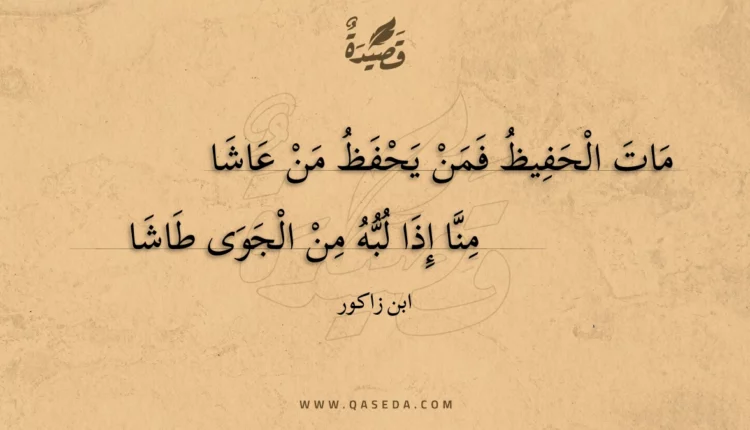 قَصِيْدَةٌ
مَاتَ الْحَفِيظُ فَمَنْ يَحْفَظُ مَنْ عَاشَا
مِنَّا إِذَا لُبُّهُ مِنْ الْجَوَى طَاشَا
ابن زاكور
WWW.QASEDA.COM